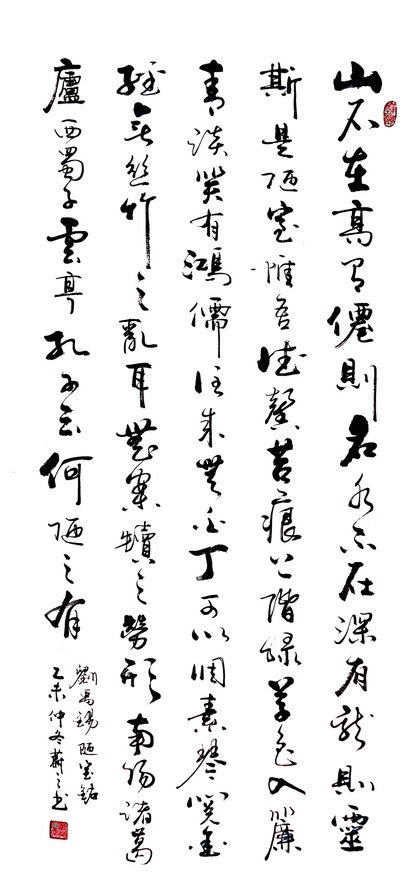 山不在高有僊則名水不在深有龍則靈
斯是陋室惟吾德馨苔痕上階綠草色入簾
青談笑有鴻儒往來無白丁可以調素琴閱金
經無絲竹之亂耳無案牘之勞形南陽諸葛
廬西蜀子雲亭孔子云何陋之有
劉禹錫陋室銘
乙未仲冬蔚之书